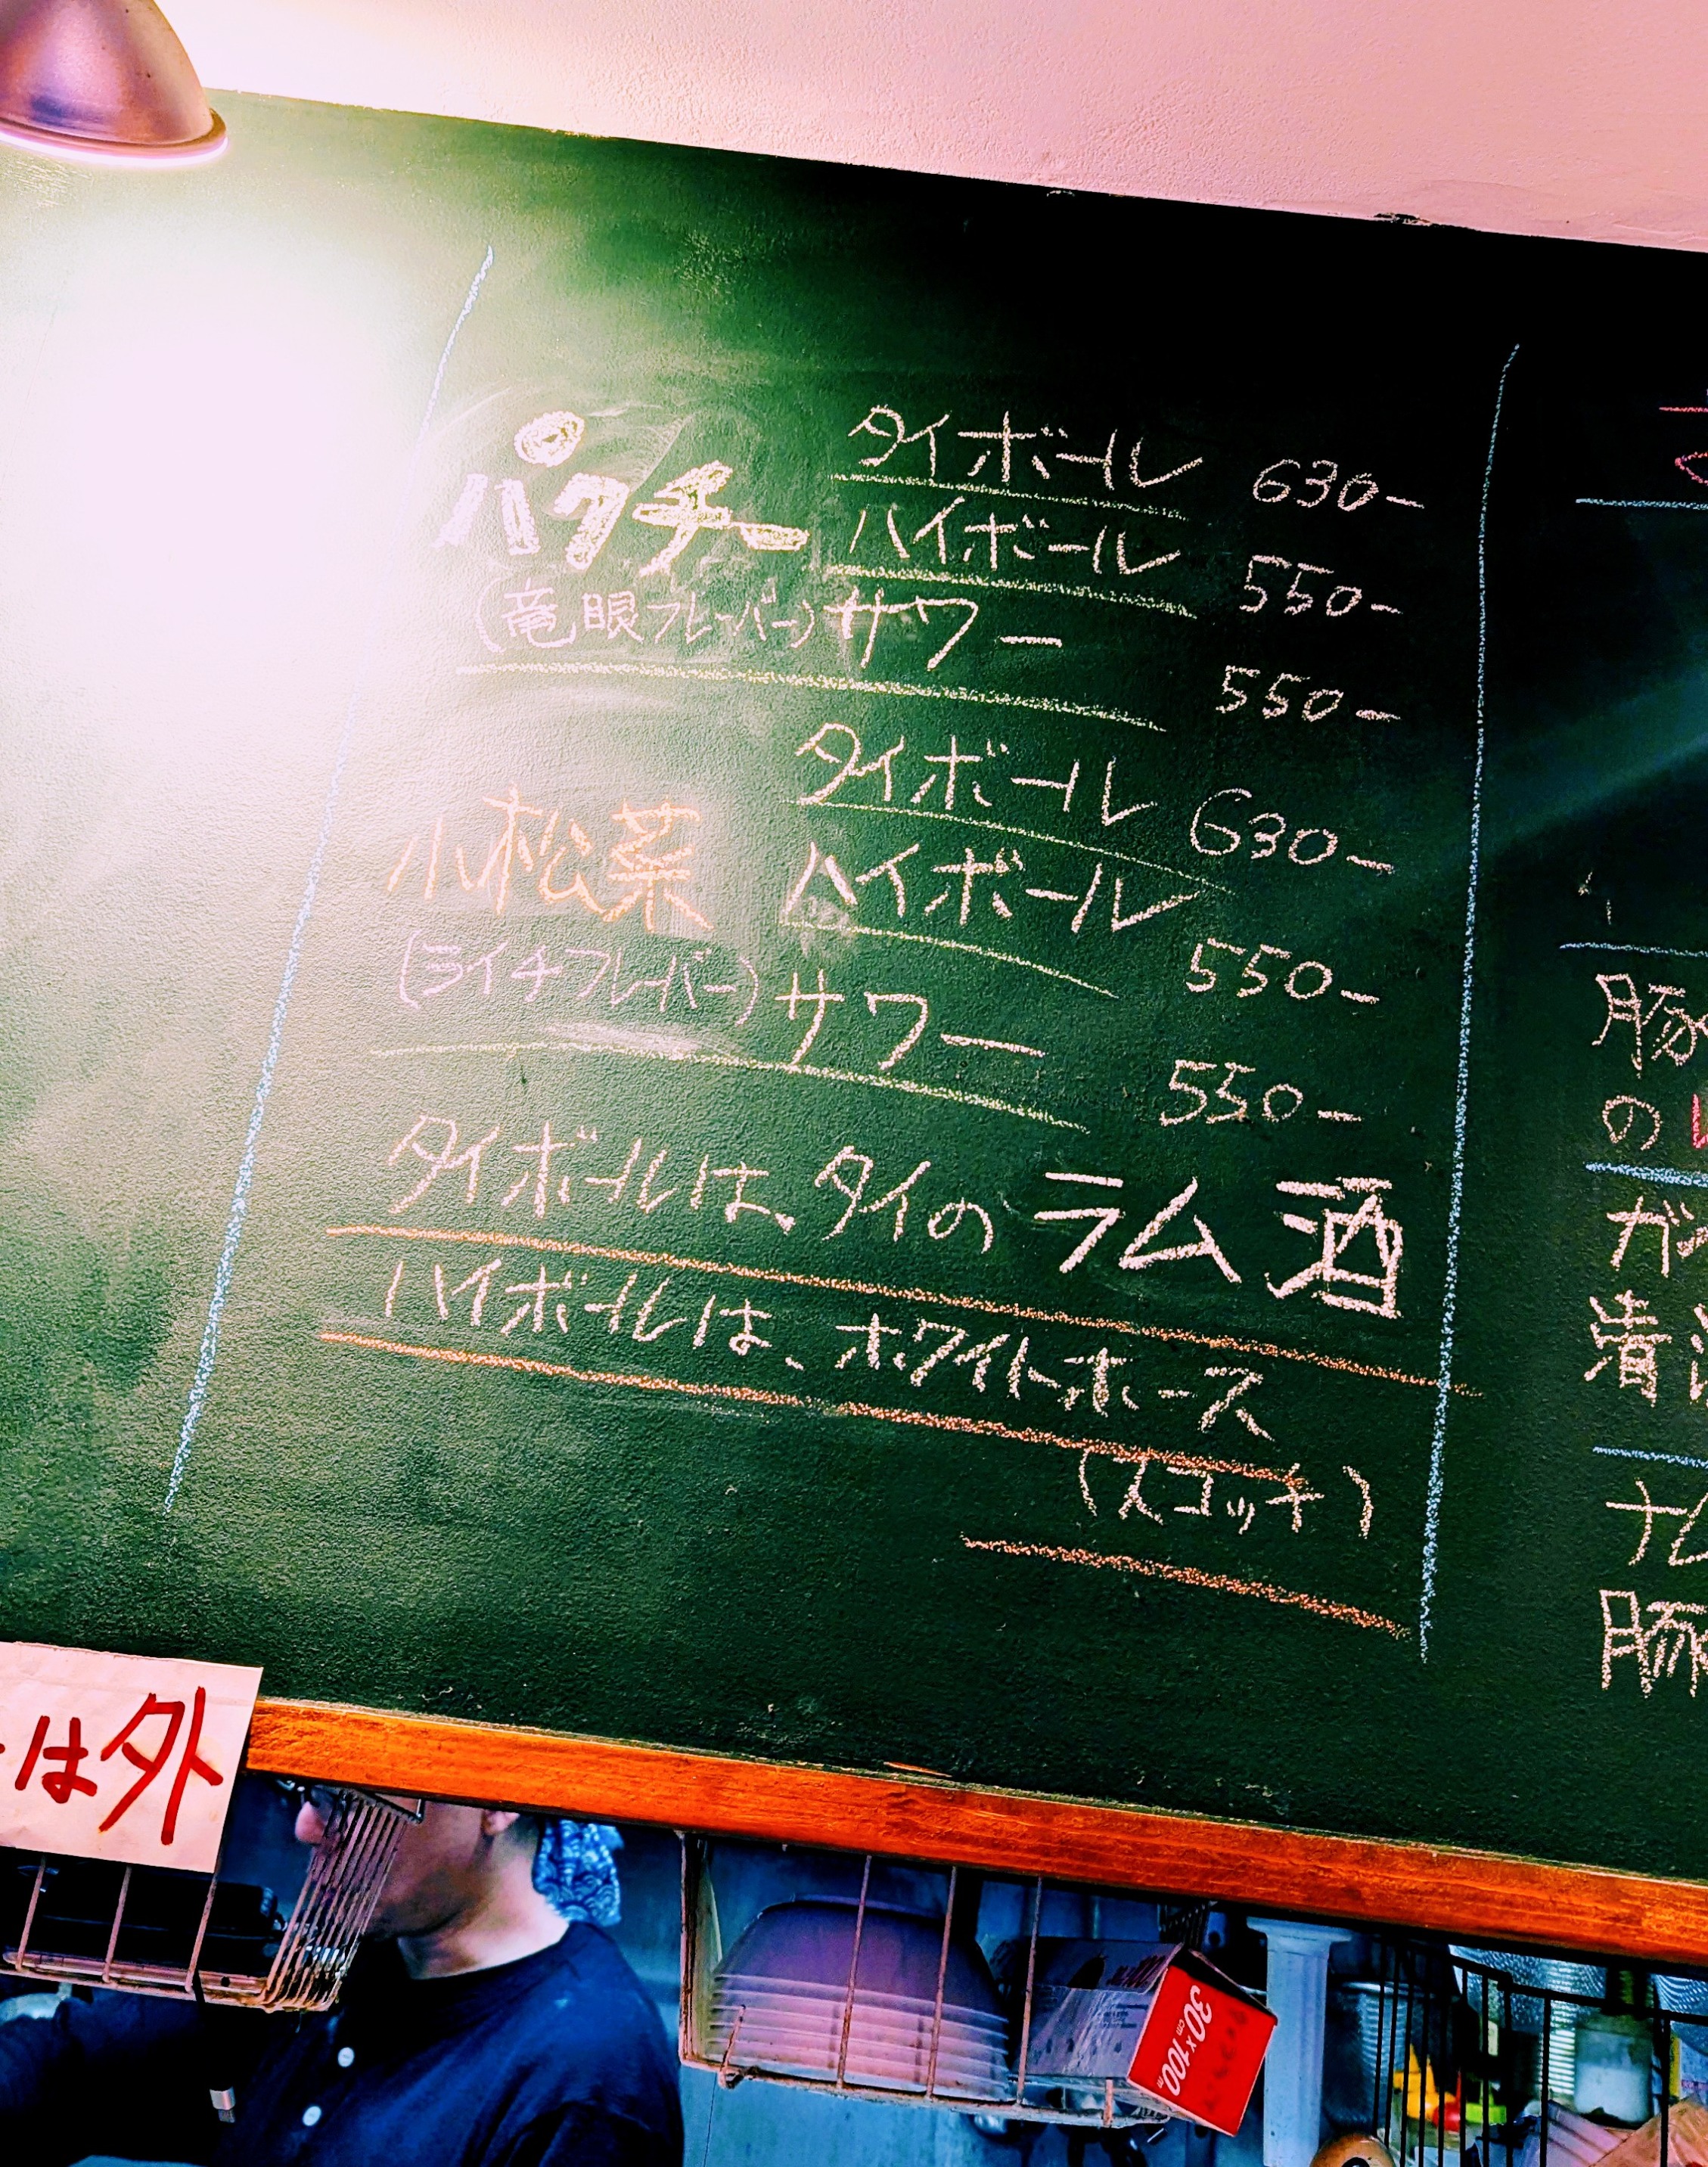 タイボール 630-
パクチー ハイボール 550-
(竜眼フレーバー) サワー 550-
タイボール 630-
小松菜 ハイボール 550-
(ライチフレーバー) サワー 550-
タイボールは、タイのラム酒
ハイボールは、ホワイトホース
(スコッチ)
豚
の
ガ
漬
ナム
豚
は外
30cm×100m